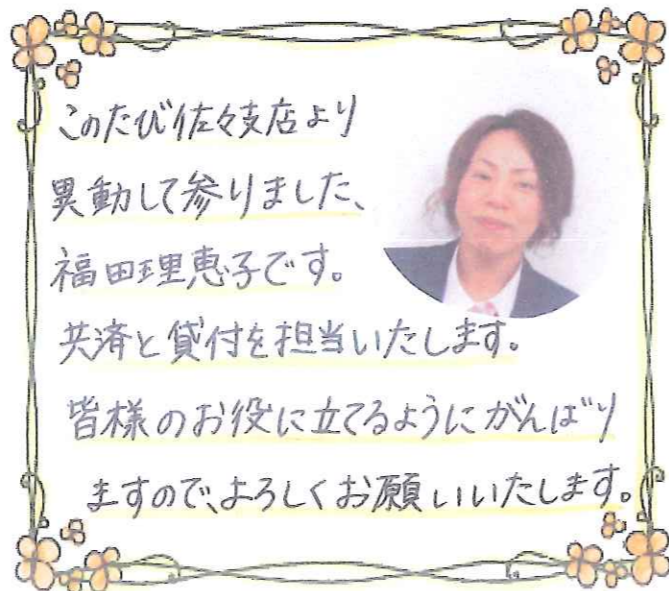 このたび佐々支店より
異動して参りました、
福田理恵子です。
共済と貸付を担当いたします。
皆様のお役に立てるようにがんばり
ますので、よろしくお願いいたします。